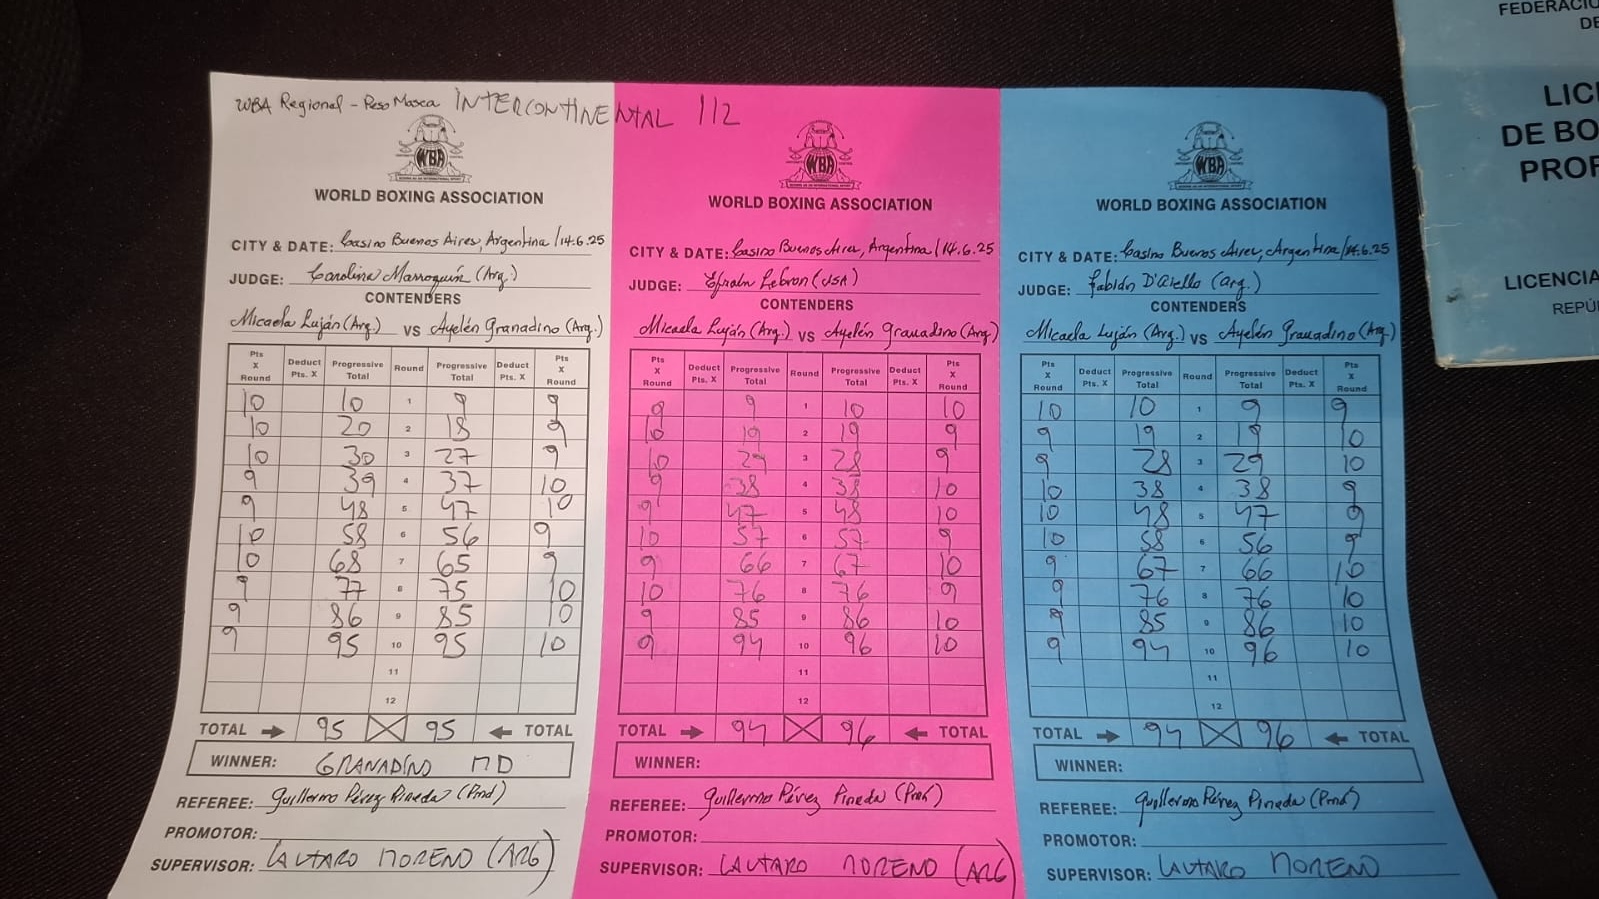 WBA Regional - Peso Mosca INTERCONTINENTAL 112
WBA
WORLD BOXING ASSOCIATION
CITY & DATE: Casino Buenos Aires, Argentina / 14.6.25
JUDGE: Carolina Marroquín (Arg.)
CONTENDERS
Micaela Luján (Arg.) VS Ayelén Granadino (Arg.)
Pts X Round Deduct Pts. X Progressive Total Round Progressive Total Deduct Pts. X Pts X Round
10 10 1 9 9
10 20 2 18 9
10 30 3 27 9
9 39 4 37 10
9 48 5 47 10
10 58 6 56 9
10 68 7 65 9
9 77 8 75 10
9 86 9 85 10
9 95 10 95 10
11
12
TOTAL 95 95 TOTAL
WINNER: GRANADINO MD
REFEREE: Guillermo Pérez Pineda (Pmá)
PROMOTOR:
SUPERVISOR: LAUTARO MORENO (ARG)
WBA
WORLD BOXING ASSOCIATION
CITY & DATE: Casino Buenos Aires, Argentina / 14.6.25
JUDGE: Efraín Lebron (USA)
CONTENDERS
Micaela Luján (Arg.) VS Ayelén Granadino (Arg.)
Pts X Round Deduct Pts. X Progressive Total Round Progressive Total Deduct Pts. X Pts X Round
9 9 1 10 10
10 19 2 19 9
10 29 3 28 9
9 38 4 38 10
9 47 5 48 10
10 57 6 57 9
9 66 7 67 10
10 76 8 76 9
9 85 9 86 10
9 94 10 96 10
11
12
TOTAL 94 96 TOTAL
WINNER:
REFEREE: Guillermo Pérez Pineda (Pmá)
PROMOTOR:
SUPERVISOR: LAUTARO MORENO (ARG)
WBA
WORLD BOXING ASSOCIATION
CITY & DATE: Casino Buenos Aires, Argentina / 14.6.25
JUDGE: Fabián D'Aiello (Arg.)
CONTENDERS
Micaela Luján (Arg.) VS Ayelén Granadino (Arg.)
Pts X Round Deduct Pts. X Progressive Total Round Progressive Total Deduct Pts. X Pts X Round
10 10 1 9 9
9 19 2 19 10
9 28 3 29 10
10 38 4 38 9
10 48 5 47 9
10 58 6 56 9
9 67 7 66 10
9 76 8 76 10
9 85 9 86 10
9 94 10 96 10
11
12
TOTAL 94 96 TOTAL
WINNER:
REFEREE: Guillermo Pérez Pineda (Pmá)
PROMOTOR:
SUPERVISOR: LAUTARO MORENO
FEDERACIO
DE
LIC
DE BO
PROF
LICENCIA
REPÚ